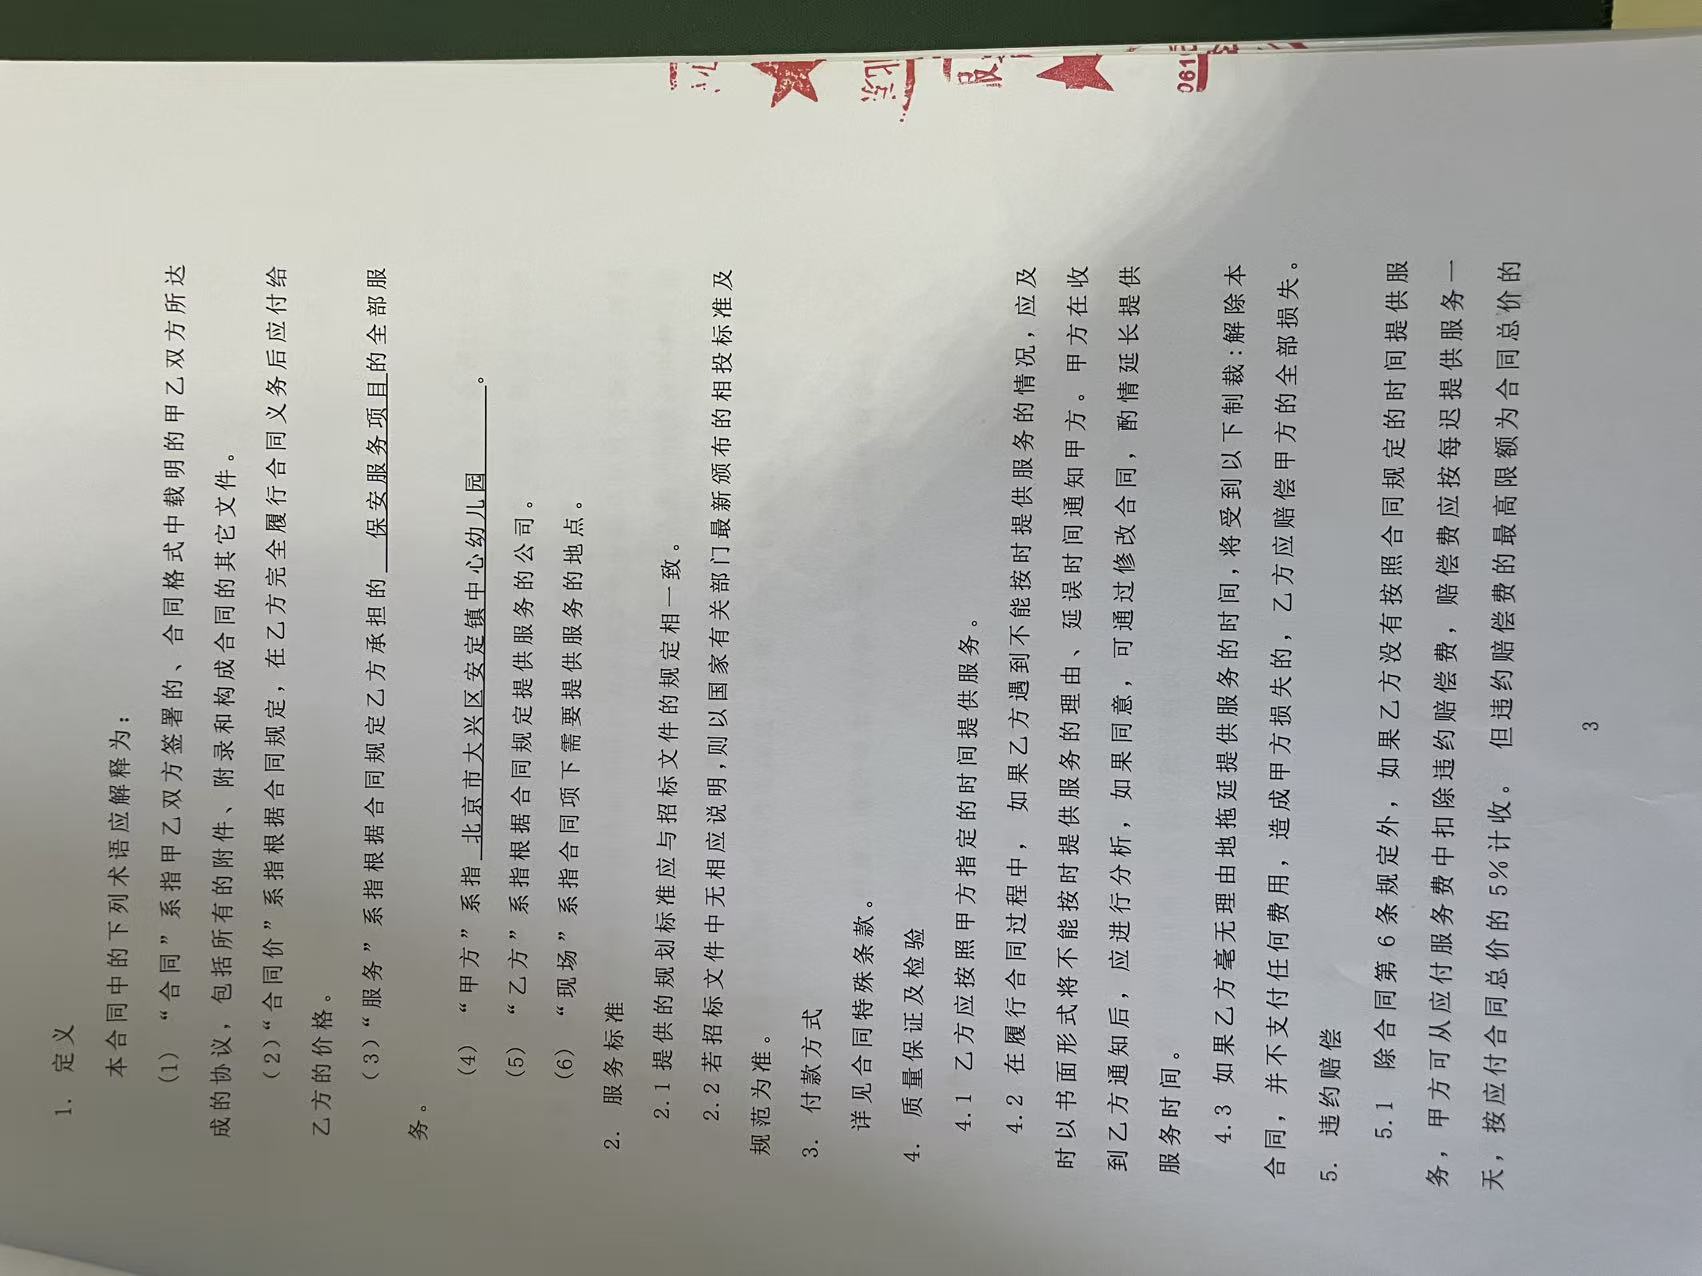 1. 定义
本合同中的下列术语应解释为：
(1) “合同”系指甲乙双方签署的、合同格式中载明的甲乙双方所达
成的协议，包括所有的附件、附录和构成合同的其它文件。
(2)“合同价”系指根据合同规定，在乙方完全履行合同义务后应付给
乙方的价格。
(3)“服务”系指根据合同规定乙方承担的 保安服务项目的全部服
务。
(4) “甲方”系指 北京市大兴区安定镇中心幼儿园 。
(5) “乙方”系指根据合同规定提供服务的公司。
(6) “现场”系指合同项下需要提供服务的地点。
2. 服务标准
2.1 提供的规划标准应与招标文件的规定相一致。
2.2 若招标文件中无相应说明,则以国家有关部门最新颁布的相投标准及
规范为准。
3. 付款方式
详见合同特殊条款。
4. 质量保证及检验
4.1 乙方应按照甲方指定的时间提供服务。
4.2 在履行合同过程中，如果乙方遇到不能按时提供服务的情况，应及
时以书面形式将不能按时提供服务的理由、延误时间通知甲方。甲方在收
到乙方通知后，应进行分析，如果同意，可通过修改合同，酌情延长提供
服务时间。
4.3 如果乙方毫无理由地拖延提供服务的时间,将受到以下制裁:解除本
合同，并不支付任何费用，造成甲方损失的，乙方应赔偿甲方的全部损失。
5. 违约赔偿
5.1 除合同第 6 条规定外，如果乙方没有按照合同规定的时间提供服
务，甲方可从应付服务费中扣除违约赔偿费，赔偿费应按每迟提供服务一
天，按应付合同总价的 5%计收。 但违约赔偿费的最高限额为合同总价的
3
北京
服
0610